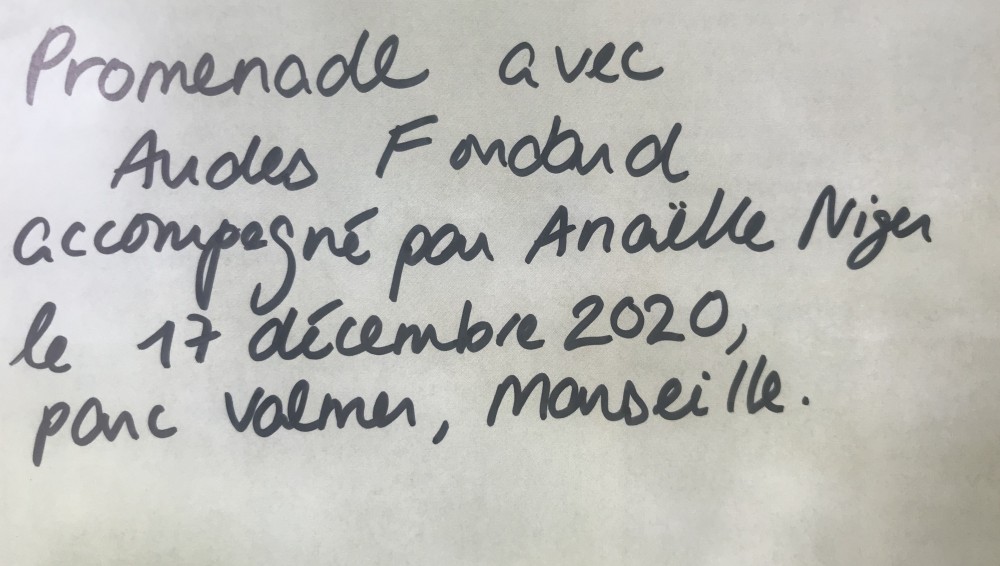 Promenade avec
Audes Fondard
accompagné par Anaëlle Niger
le 17 décembre 2020,
parc Valmer, Marseille.